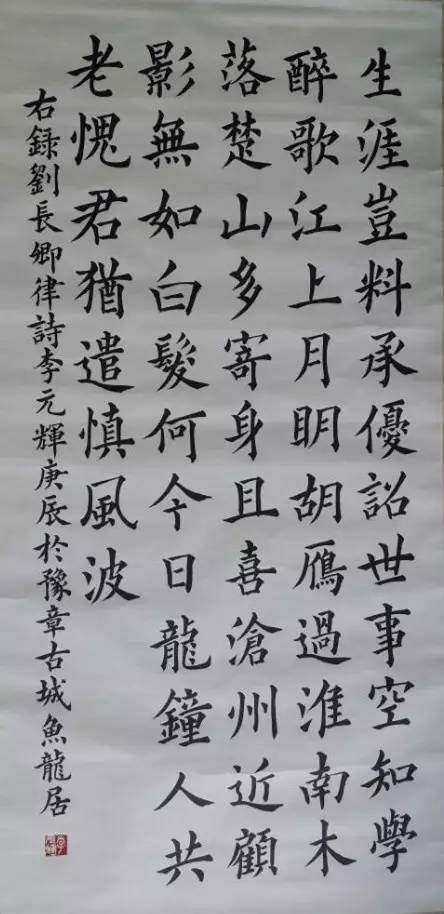 生涯豈料承優詔世事空知學
醉歌江上月明胡鴈過淮南木
落楚山多寄身且喜滄州近顧
影無如白髮何今日龍鐘人共
老愧君猶遣慎風波
右録劉長卿律詩李元輝庚辰於豫章古城魚龍居